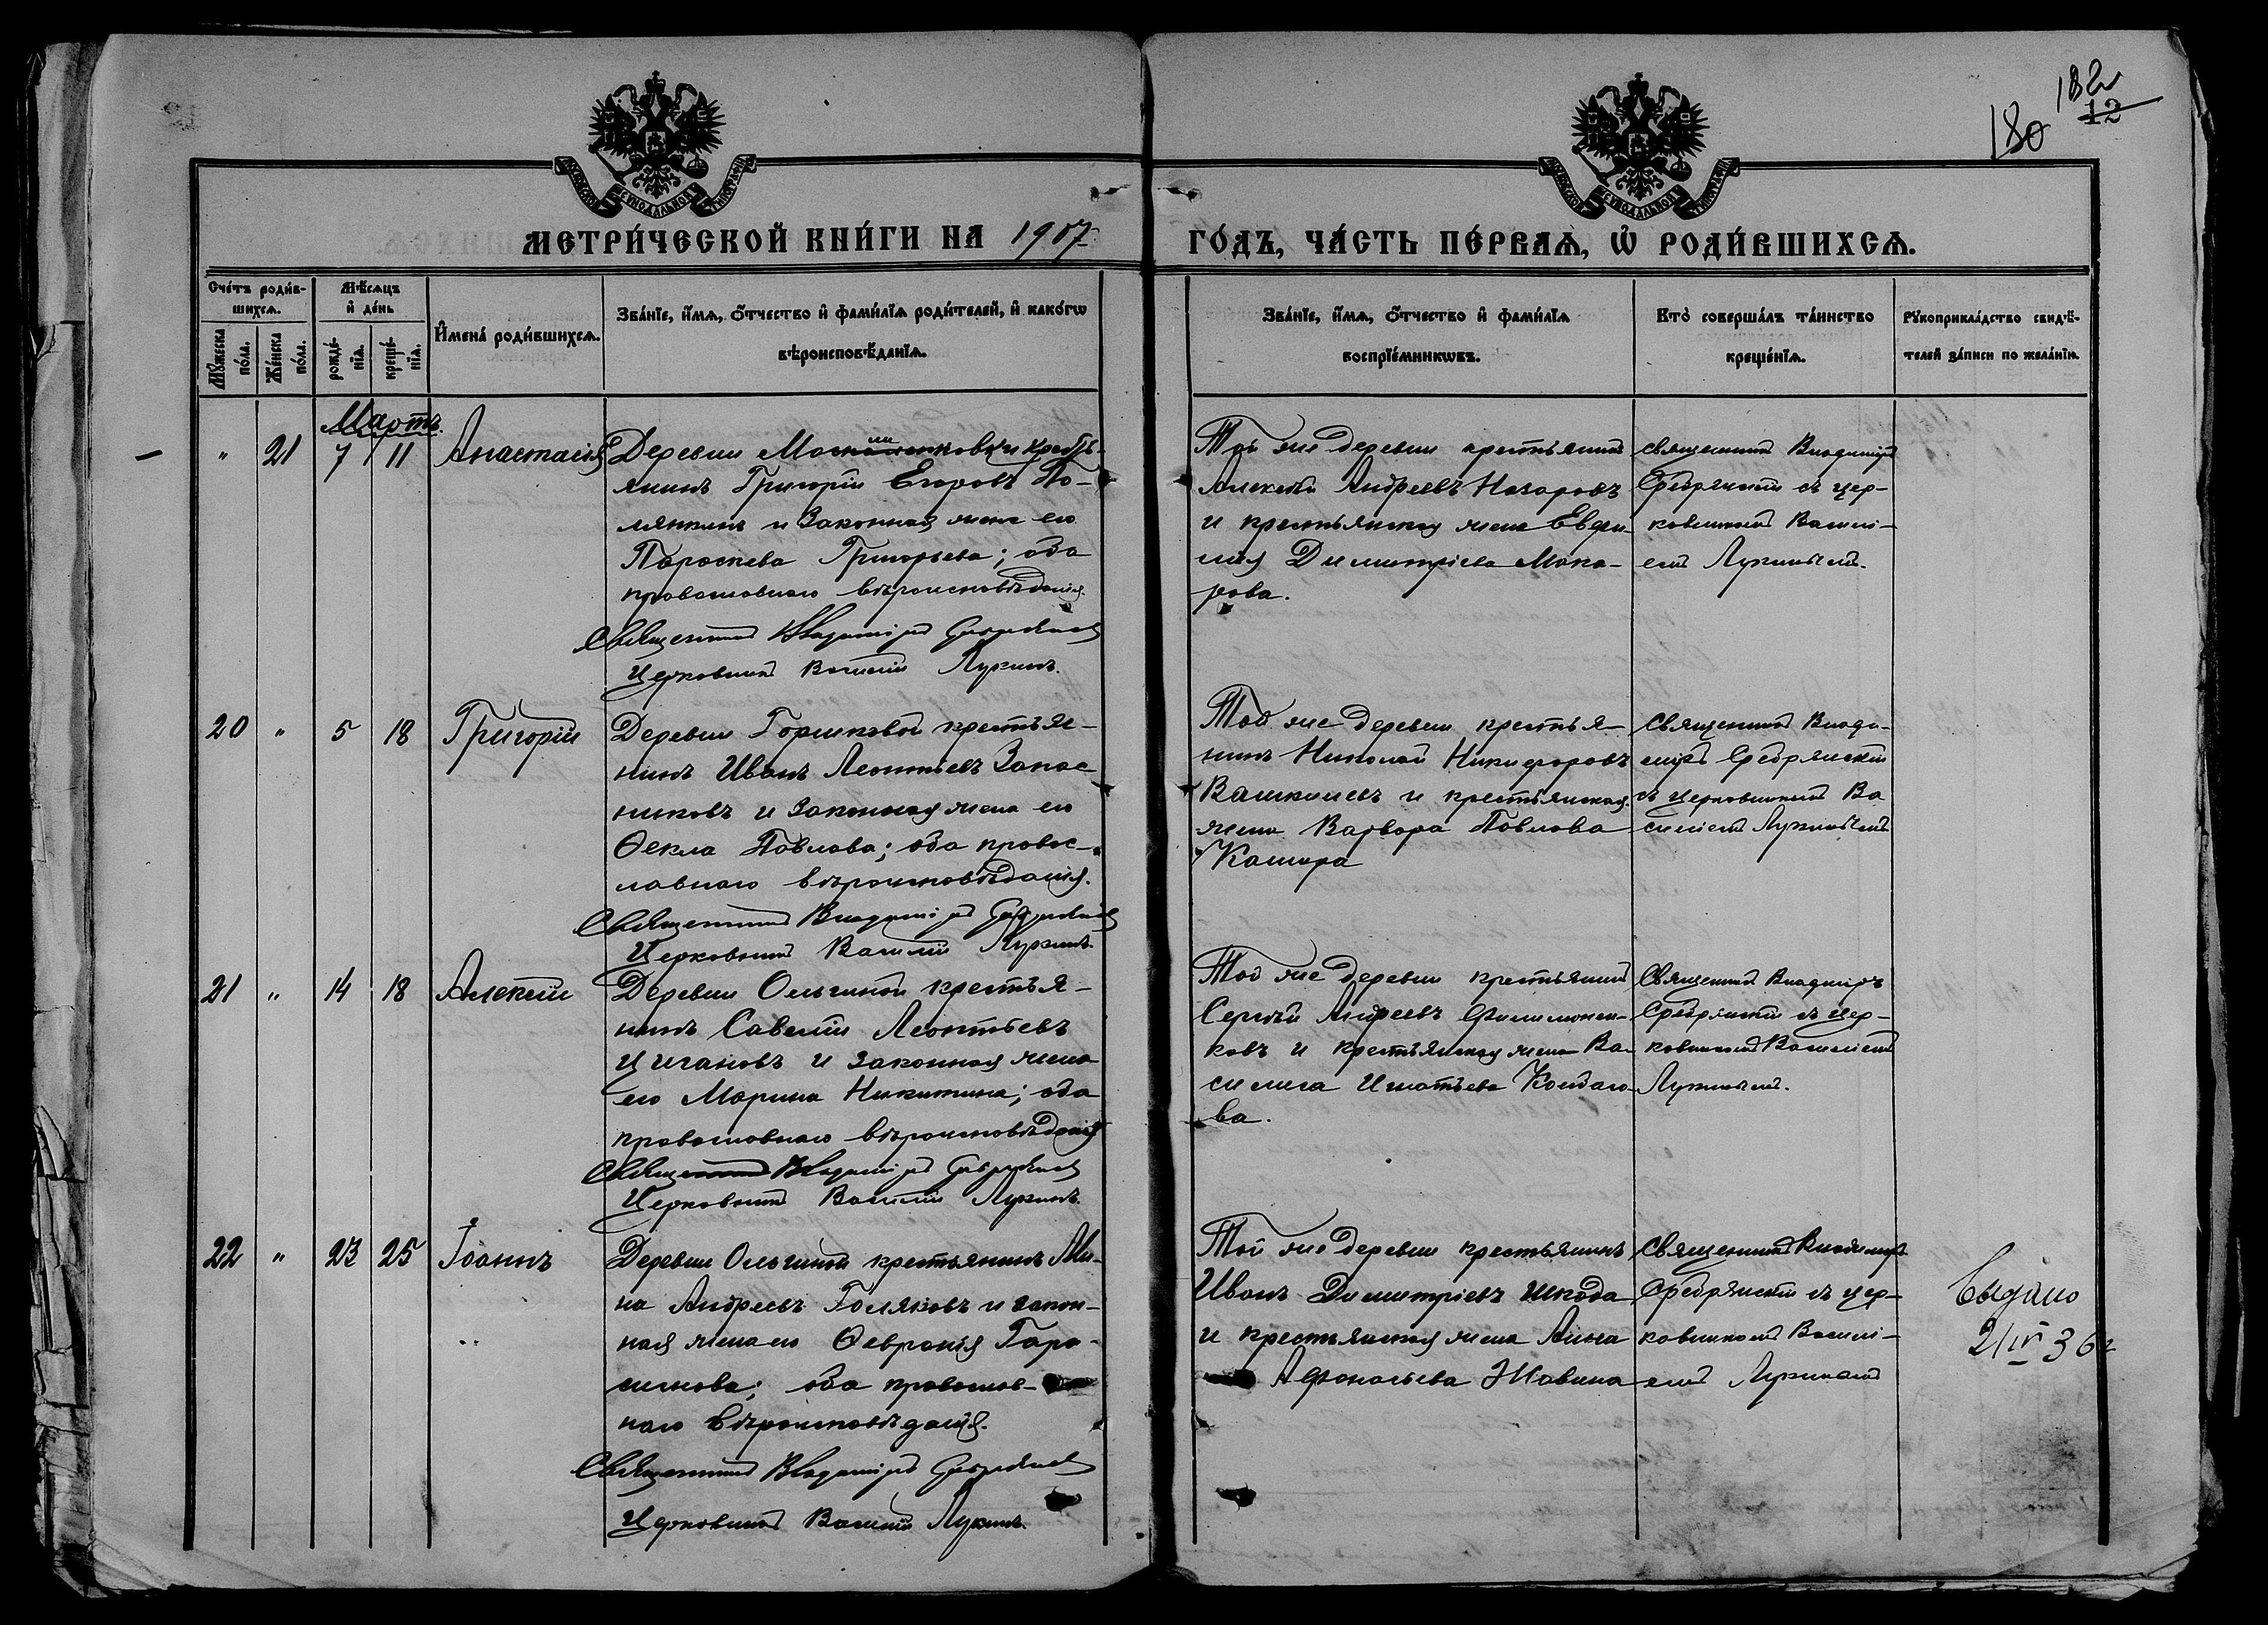 180
182
12
МЕТРИ́ЧЕСКОЙ КНИ́ГИ НА 1907
ГО́ДЪ, ЧА́СТЬ ПЕ́РВАѦ, Ѡ҆ РОДИ́ВШИХСѦ.
Сче́тъ роди́в-
шихсѧ.
Мѣ́сѧцъ
и҆ де́нь
Мꙋ́жеска по́ла.
Же́нска по́ла.
рожде́-
нїѧ.
креще́-
нїѧ.
И҆мена̀ роди́вшихсѧ.
Зва́нїе, и҆́мѧ, ѻ҆́тчество и҆ фами́лїѧ роди́телей, и҆ како́гѡ
вѣроисповѣ́данїѧ.
Зва́нїе, и҆́мѧ, ѻ҆́тчество и҆ фами́лїѧ
воспрїе́мникѡвъ.
Кто̀ соверша́лъ та́инство
креще́нїѧ.
Рꙋкоприкла́дство свидѣ́-
телей за́писи по жела́нїю.
Мартъ.
" 21 7 11 Анастасія
Деревни крестья-
янинъ Григорій Егоровъ По-
лянкинъ и законная жена его
Параскева Григорьева; оба
православнаго вѣроисповѣданія.
Священникъ Владиміръ Сребрянскій
Церковникъ Василій Лукинъ.
Той же деревни крестьянинъ
Алексѣй Андреевъ Назаровъ
и крестьянская жена Евфи-
мія Димитріева Мака-
рова.
Священникъ Владиміръ
Сребрянскій съ цер-
ковникомъ Василі-
емъ Лукинымъ.
20 " 5 18 Григорій
Деревни Горшковой крестья-
нинъ Иванъ Леонтьевъ Запас
никовъ и законная жена его
Ѳекла Павлова; оба правос-
лавнаго вѣроисповѣданія.
Священникъ Владиміръ Сребрянскій
Церковникъ Василій Лукинъ.
Той же деревни крестья-
нинъ Николай Никифоровъ
Вашкиневъ и крестьянская
жена Варвара Павлова
Кашира
Священникъ Влади-
міръ Сребрянскій
съ церковникомъ Ва
силіемъ Лукинымъ
21 " 14 18 Алексій
Деревни Ольгиной крестья-
нинъ Савелій Леонтьевъ
Цигановъ и законная жена
его Марина Никитина; оба
православнаго вѣроисповѣданія
Священникъ Владиміръ Сребрянскій
Церковникъ Василій Лукинъ.
Той же деревни крестьянинъ
Сергѣй Андреевъ Филимонен-
ковъ и крестьянская жена Ва-
силиса Игнатьева
ва.
Священникъ Владиміръ
Сребрянскій съ цер-
ковникомъ Василіемъ
Лукинымъ.
22 " 23 25 Іоаннъ
Деревни Ольгиной крестьянинъ Ми-
на Андреевъ Голяковъ и закон-
ная жена его Ѳевронія Гара-
симова; оба православ-
наго вѣроисповѣданія.
Священникъ Владиміръ Сребрянскій
Церковникъ Василій Лукинъ.
Той же деревни крестьянинъ
Иванъ Димитріевъ Шкода
и крестьянская жена Анна
Афанасьева Жавина
Священникъ Владиміръ
Сребрянскій съ цер-
ковникомъ Василі-
емъ Лукинымъ
Выдано
2/IV 36 г